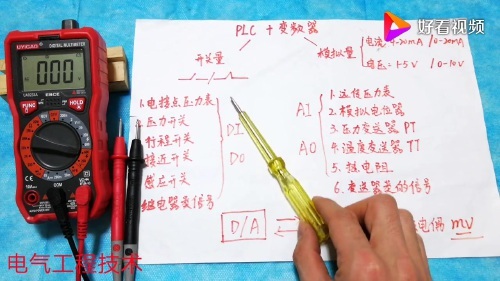 PLC + 变频器
好看视频
开关量
模拟量
电流 4-20mA / 0-20mA
电压 1-5V / 0-10V
DIGITAL MULTIMETER
000
1.电接点压力表
压力开关
行程开关
接近开关
感应开关
继电器类信号
DI
DO
AI
AO
1.远传压力表
2.模拟电位器
3.压力变送器 PT
4.温度变送器 TT
5.热电阻
6.变送器类的信号
D/A
电偶 mV
COM
电气工程技术